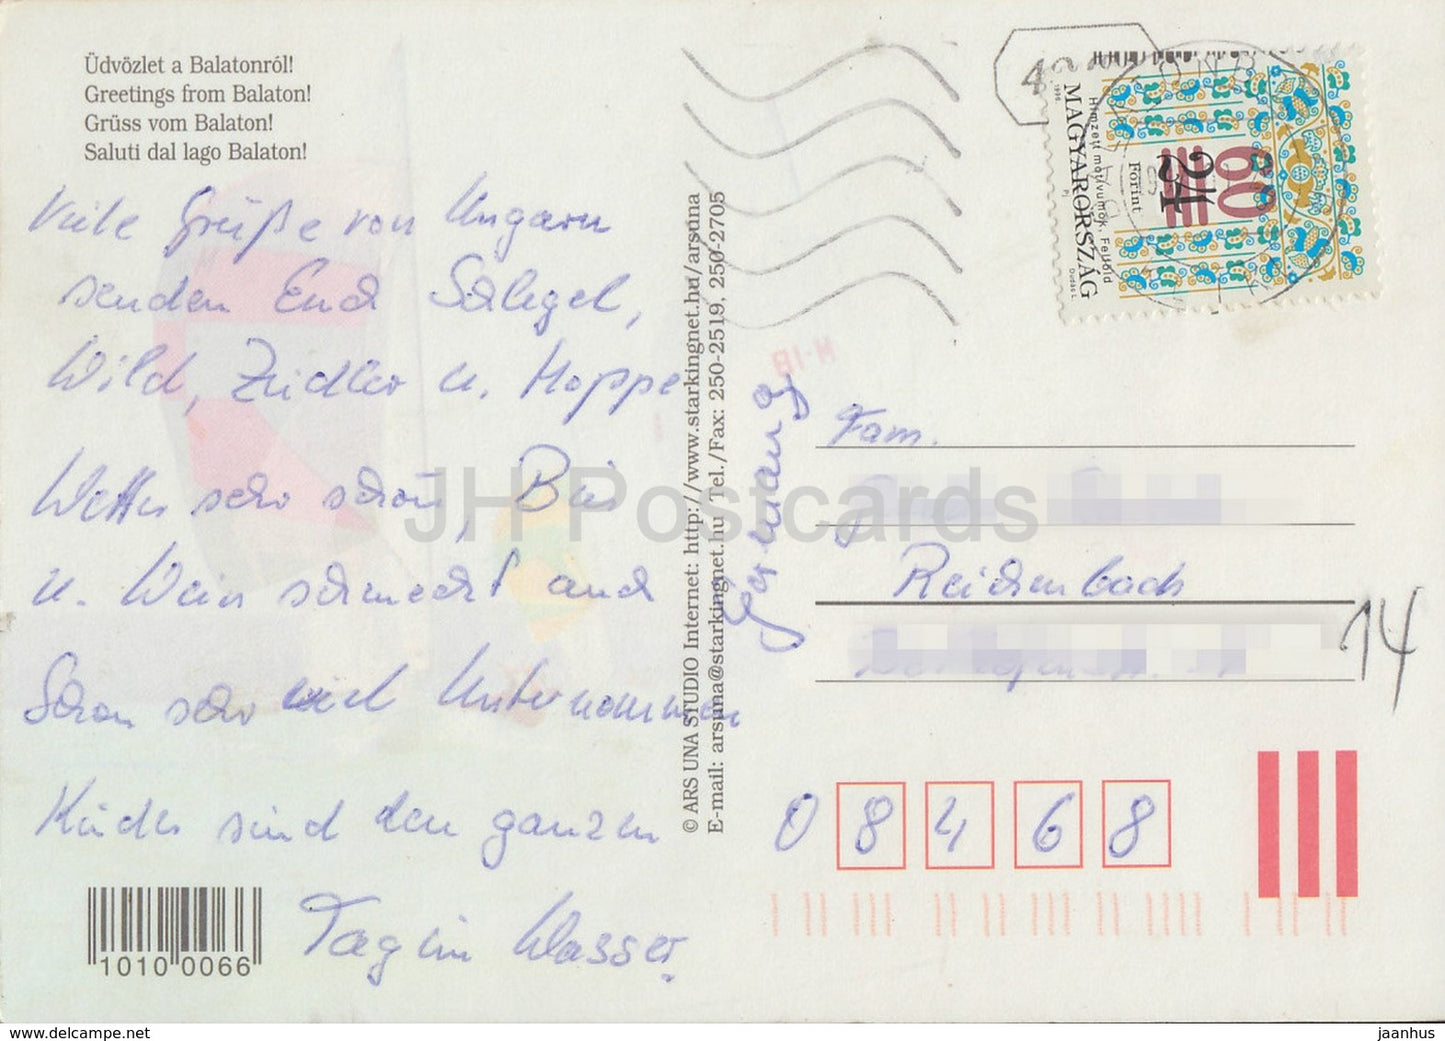 Üdvözlet a Balatonról!
Greetings from Balaton!
Grüss vom Balaton!
Saluti dal lago Balaton!
Viele Grüße von Ungarn
senden Euch Schlegel,
Wild, Zeidler u. Hoppe
Wetter sehr schön, Bier
u. Wein schmeckt auch
Schon sehr viel Unternommen
Kinder sind den ganzen
Tag im Wasser.
1010 0066
© ARS UNA STUDIO Internet: http://www.starkingnet.hu/arsuna
E-mail: arsuna@starkingnet.hu Tel./Fax: 250-2519, 250-2705
Germany
4
MAGYARORSZÁG
1996
Hímzett motívumok, Felföld
Forint
24
60
Dudás L.
H-IB
Fam.
Reichenbach
14
0 8 4 6 8
JH Postcards
www.delcampe.net
jaanhus